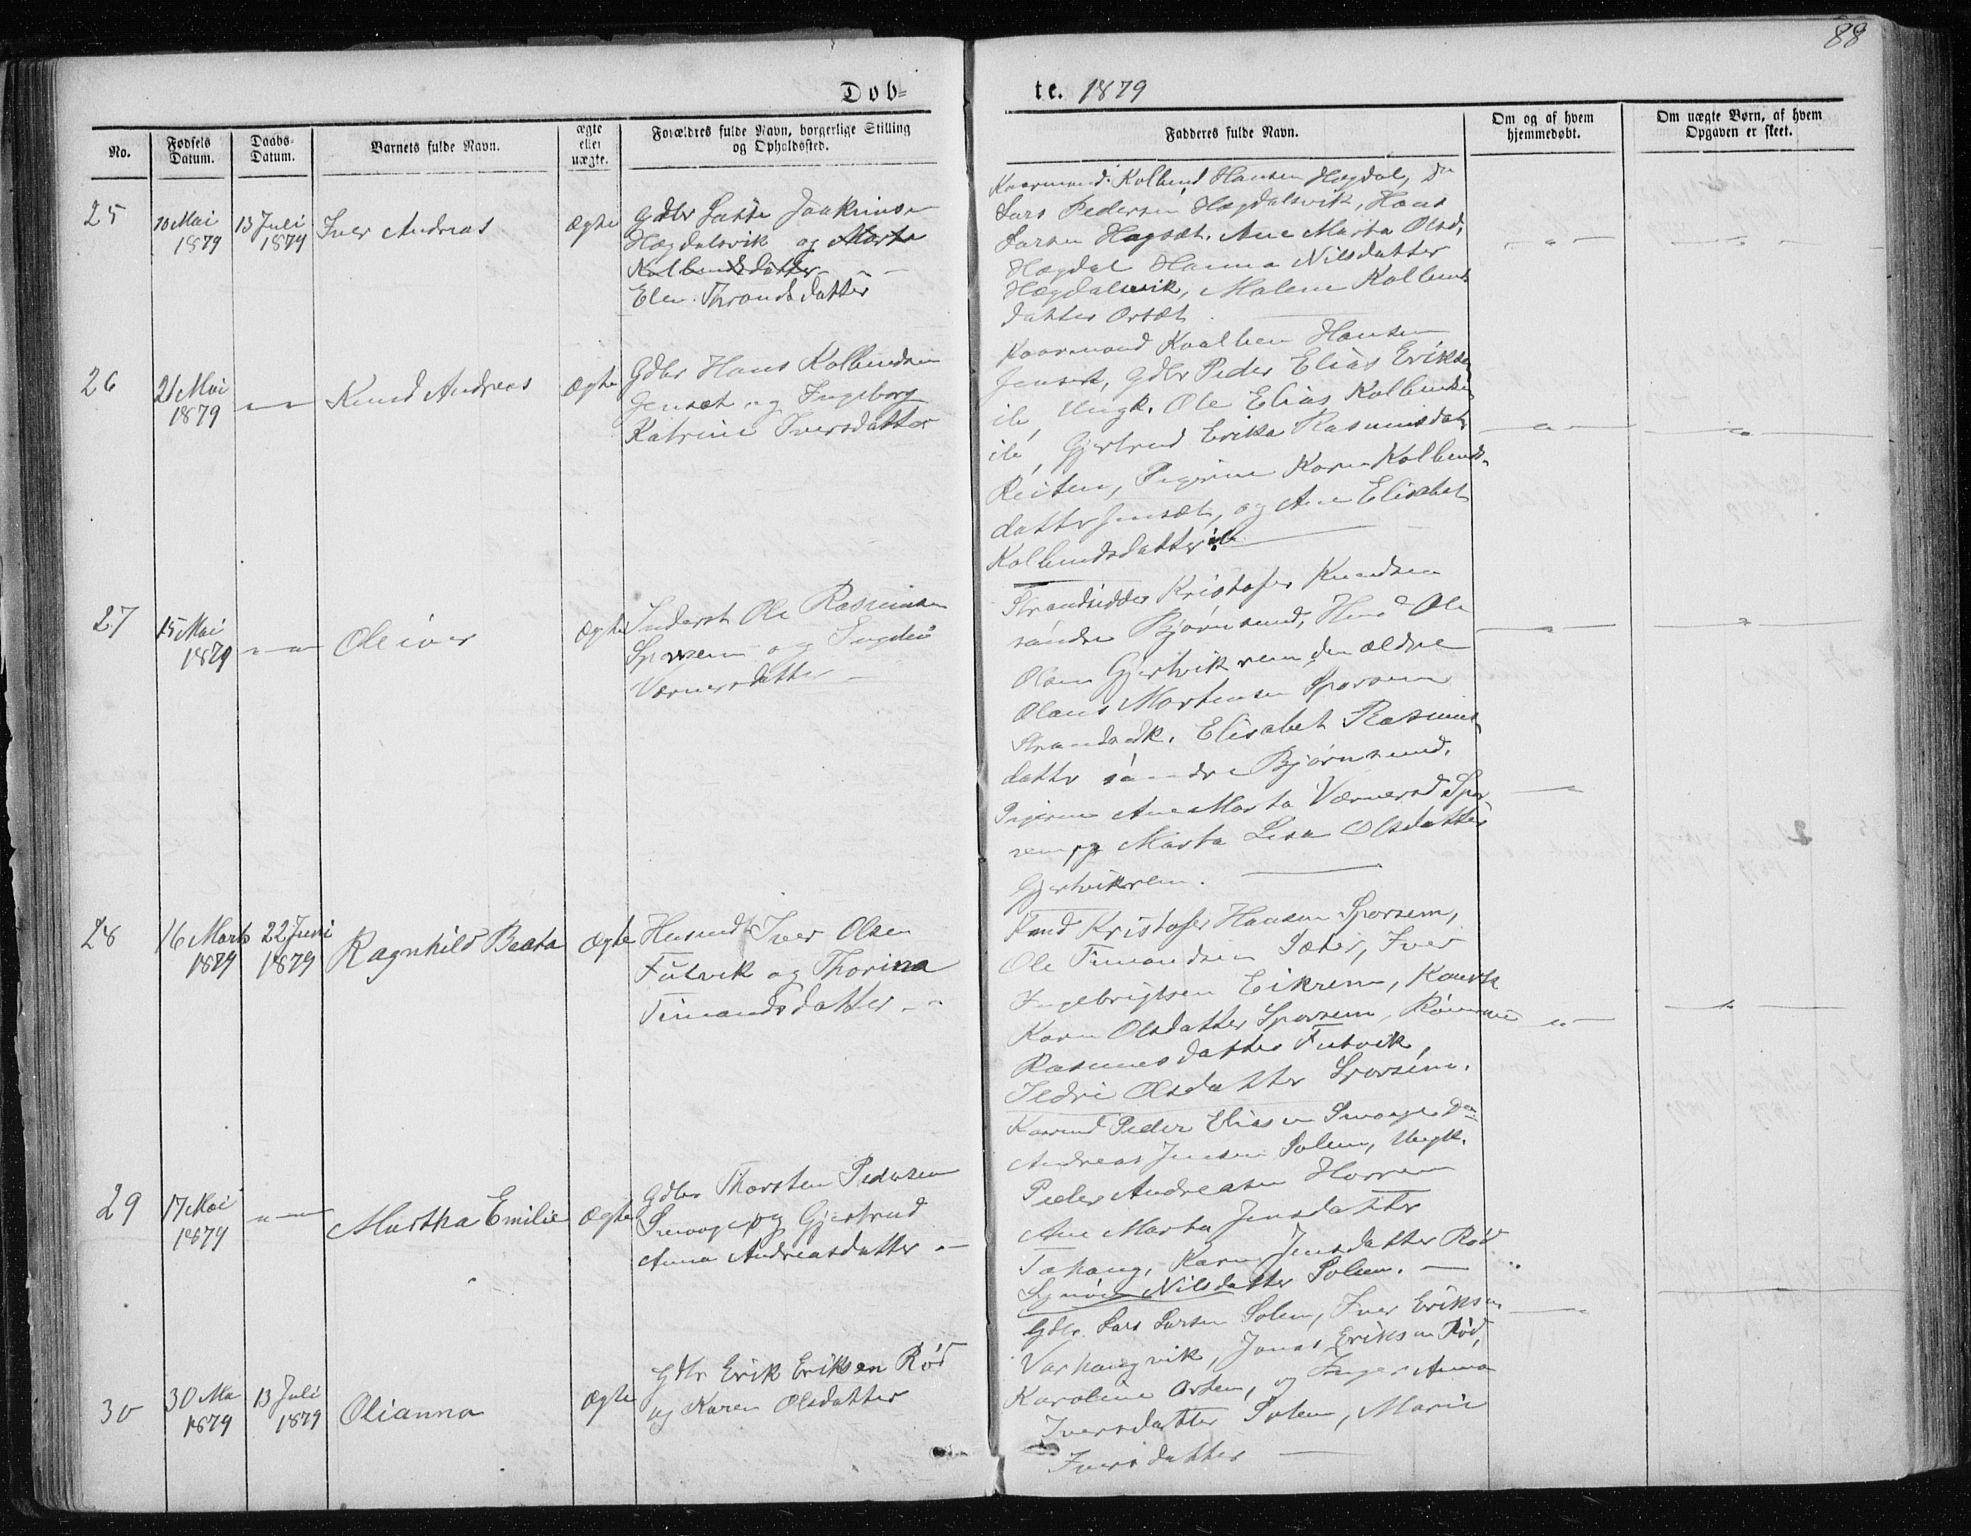 88
Døb=
te. 1879
No.
Fødsels Datum.
Daabs- Datum.
Barnets fulde Navn.
ægte eller uægte.
Forældres fulde Navn, borgerlige Stilling og Opholdssted.
Fadderes fulde Navn.
Om og af hvem hjemmedøbt.
Om uægte Børn, af hvem Opgaven er skeet.
25
10 Mai 1879
13 Juli 1879
Iver Andreas
Ægte
Gdbr
Hægdalsvik og Marta
Kolbendsdatter
Elen Throndsdatter
Hansen Hægdal, Do
Lars Pedersen Hægdalsvik, Hans
Larsen Hagsæt, Ane Marta Olsd.
Hægdal Hanna Nilsdatter
Hægdalsvik, Malene Kolbend
datter Orsæt
26
21 Mai 1879
— " —
Knud Andreas
Ægte
Gdbr Hans Kolbendsen
Jensæt og Ingeborg
Katrine Iversdatter
Kaarmand Hansen
Jensæt, Gdbr Peder Elias Eriksen
ib, Ungk. Ole Elias Kolbends
ib, Gjertrud Erika Rasmusdat
Reiten, Pigerne Karen Kolbends-
datter Jensæt, og Ane Elisabet
Kolbendsdatter ib
27
15 Mai 1879
— " —
Oleiver
Ægte
Inderst Ole Rasmusen
Sporsem og
Værnersdatter
Strandsidder Kristofer Knudsen
søndre Bjørnsund, Ole
Olsen Gjertvikrem den ældre
Olaus Mortensen Sporsem
Elisabet Rasmus
datter søndre Bjørnsund,
Pigerne Ane Marta Værnersd. Spor
sem og Marta Lesa Olsdatter
Gjertvikrem.
28
16 Marts 1879
22 Juni 1879
Ragnhild Beata
Ægte
Husmd Iver Olsen
Futvik og Thorina
Timandsdatter
Kristofer Hansen Sporsem,
Ole Timandsen Sæter, Iver
Ingebrigtsen Eikrem,
Karen Olsdatter Sporsem,
Rasmusdatter Futvik,
Olsdatter Sporsem.
29
17 Mai 1879
— " —
Martha Emilie
Ægte
Gdbr Thorsten Pedersen
Smaage og Gjertrud
Anna Andreasdatter
Peder Eliasen Smaage Do
Andreas Jensen Solem, Ungk.
Peder Andreasen Horrem
Ane Marta Jensdatter
Karen Jensdatter Rød
Nilsdatter Solem.
30
30 Mai 1879
13 Juli 1879
Olianna
Ægte
Gdbr Erik Eriksen Rød
og Karen Olsdatter
Gdbr. Lars Larsen Solem, Iver Eriksen
Varhaugvik, Jonas Eriksen Rød,
Karoline og Inger Anna
Iversdatter Solem, Marie
Iversdatter